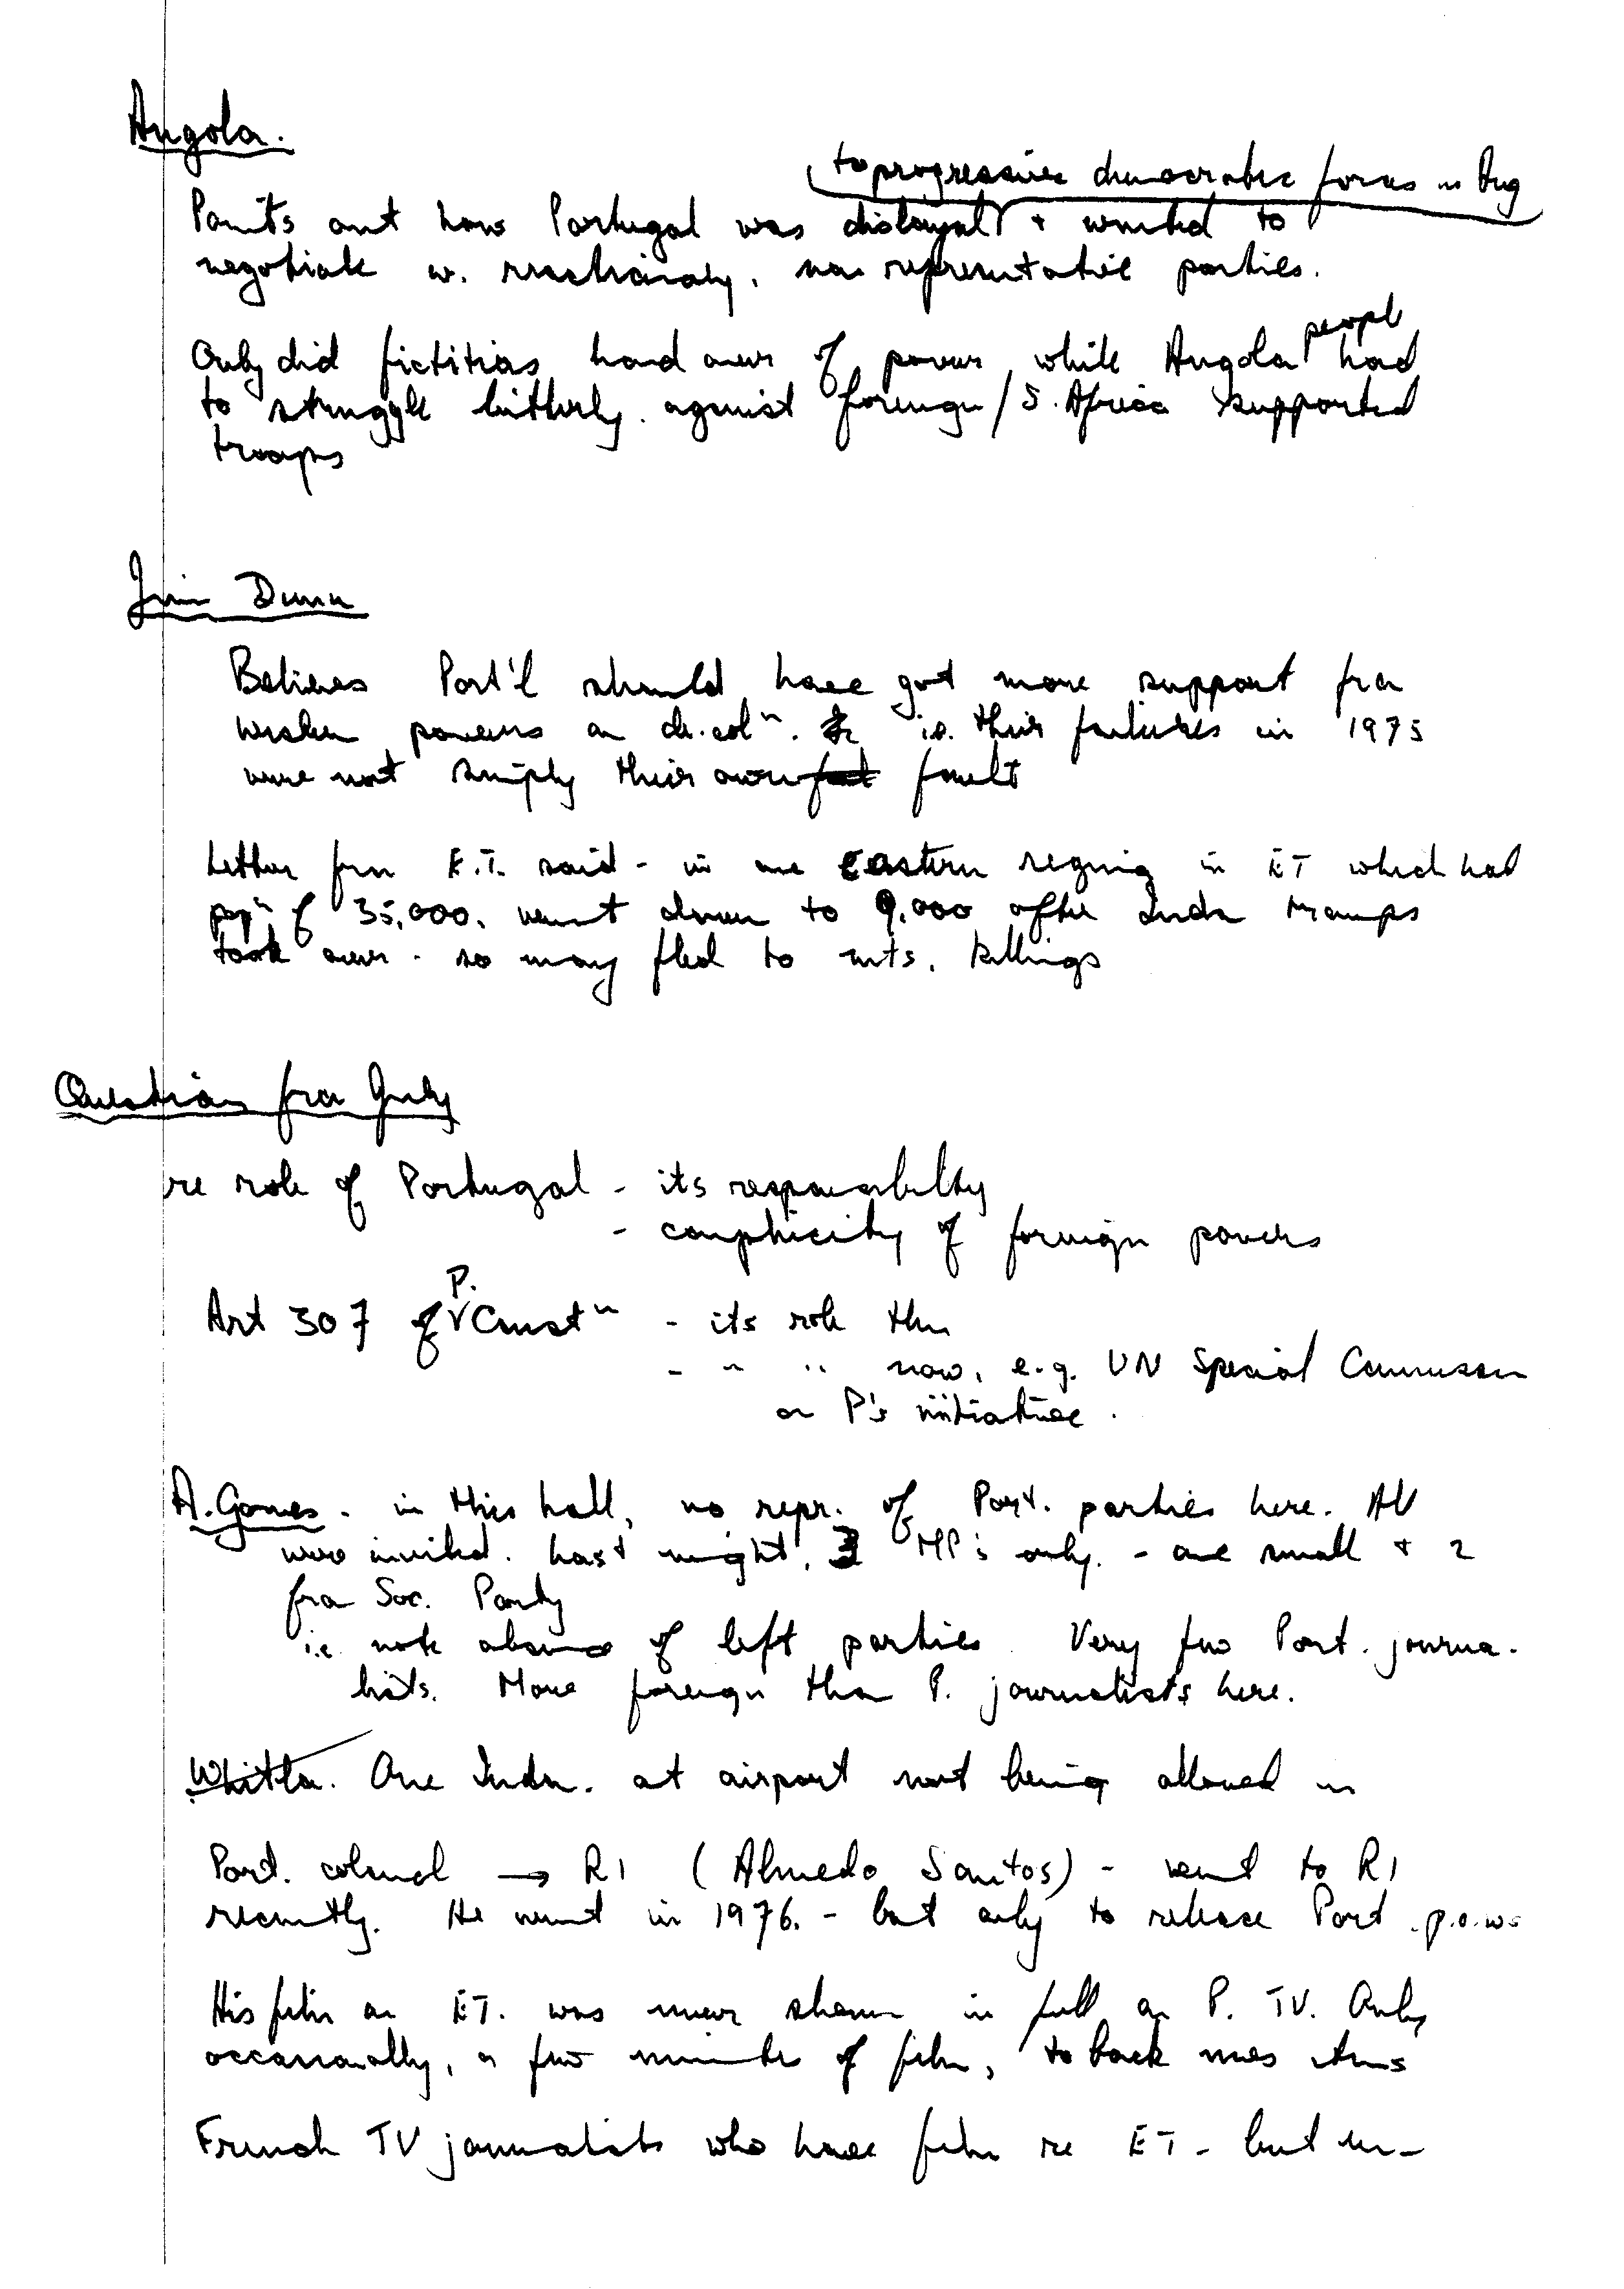 Angola.
to progressive democratic forces in Ang
Points out how Portugal was disloyal + wanted to
negotiate w. reactionary, non representative parties.
Only did fictitias hand over of power while Angola people had
to struggle bitterly against foreign / S. Africa supported
troops
Jim Dunn
Believes Port'l should have got more support from
western powers on de.coln. i.e. their failures in 1975
were not simply their own fault
Letter from E.T. said - in one eastern region in ET which had
popn of 35,000. went down to 9,000 after Indon troops
took over - so many fled to mts, killings
Question from
re role of Portugal - its responsibility
- complicity of foreign powers
Art 307 of P. Constn - its role then
- " " now, e.g. UN Special Commission
on P's initiative.
A. Gomes. in this hall, no repr. of Port. parties here. All
were invited. Last night, 3 MP's only. - one small + 2
from Soc. Party
i.e. note absence of left parties. Very few Port. journa-
lists. More foreign than P. journalists here.
Whitla. One Indon. at airport not being allowed in
Port. colonel → RI (Almedo Santos) - went to RI
recently. He went in 1976. - but only to release Port. p.o.ws
His film on ET. was never shown in full on P. TV. Only
occasionally, a few minutes of film, to back news items
French TV journalists who have film re ET - but